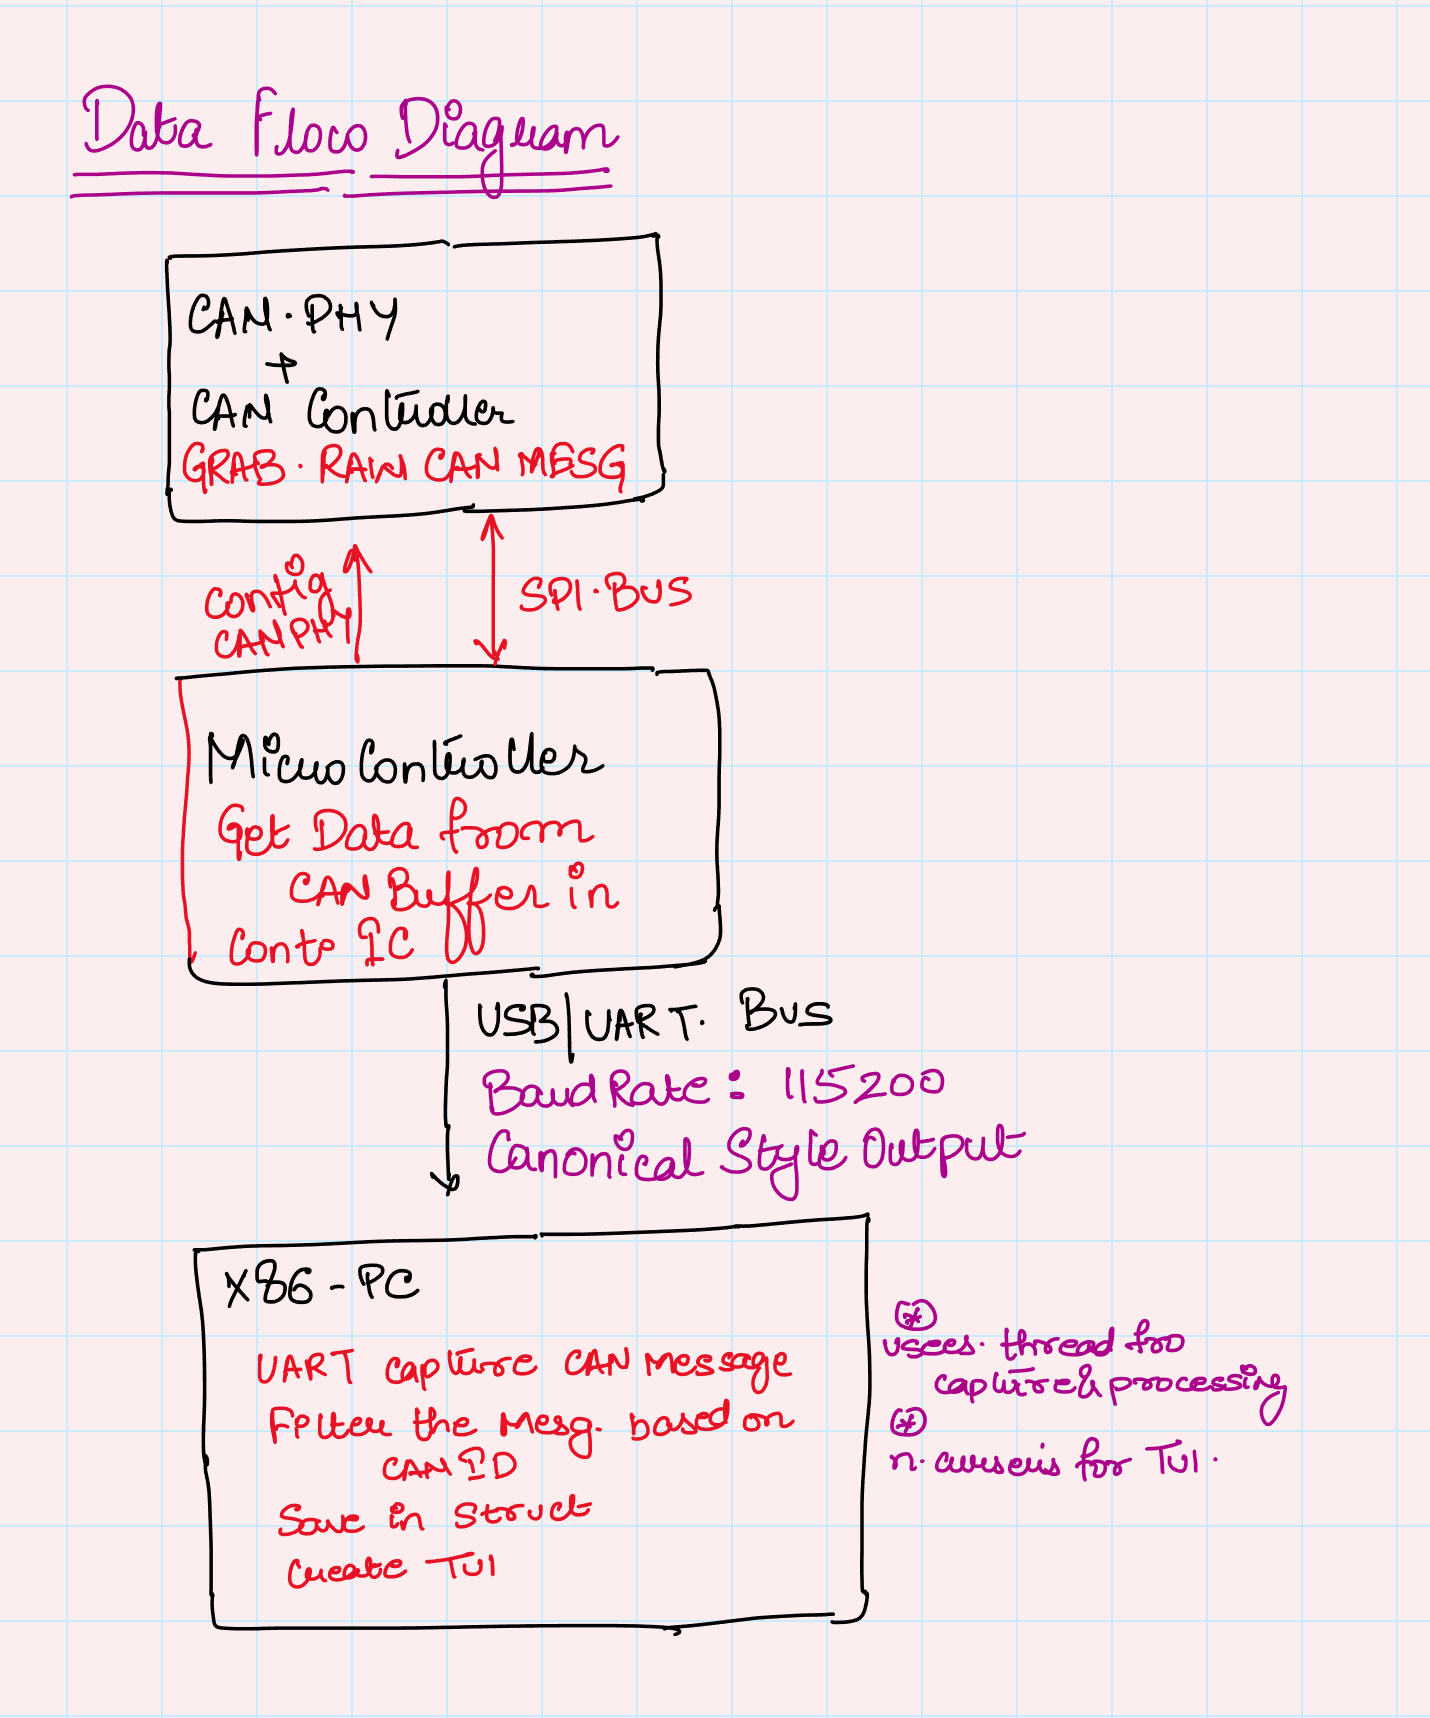 Data Flow Diagram
CAN·PHY
+
CAN Controller
GRAB·RAW CAN MESG
Config
CANPHY
SPI·BUS
MicroController
Get Data from
CAN Buffer in
Conto IC
USB|UART· Bus
BaudRate: 115200
Canonical Style Output
X86-PC
UART capture CAN Message
Filter the Mesg. based on
CAN ID
Save in Struct
Create TUI
*
usees· thread fro
capture & processing
*
n·curseris for TUI·